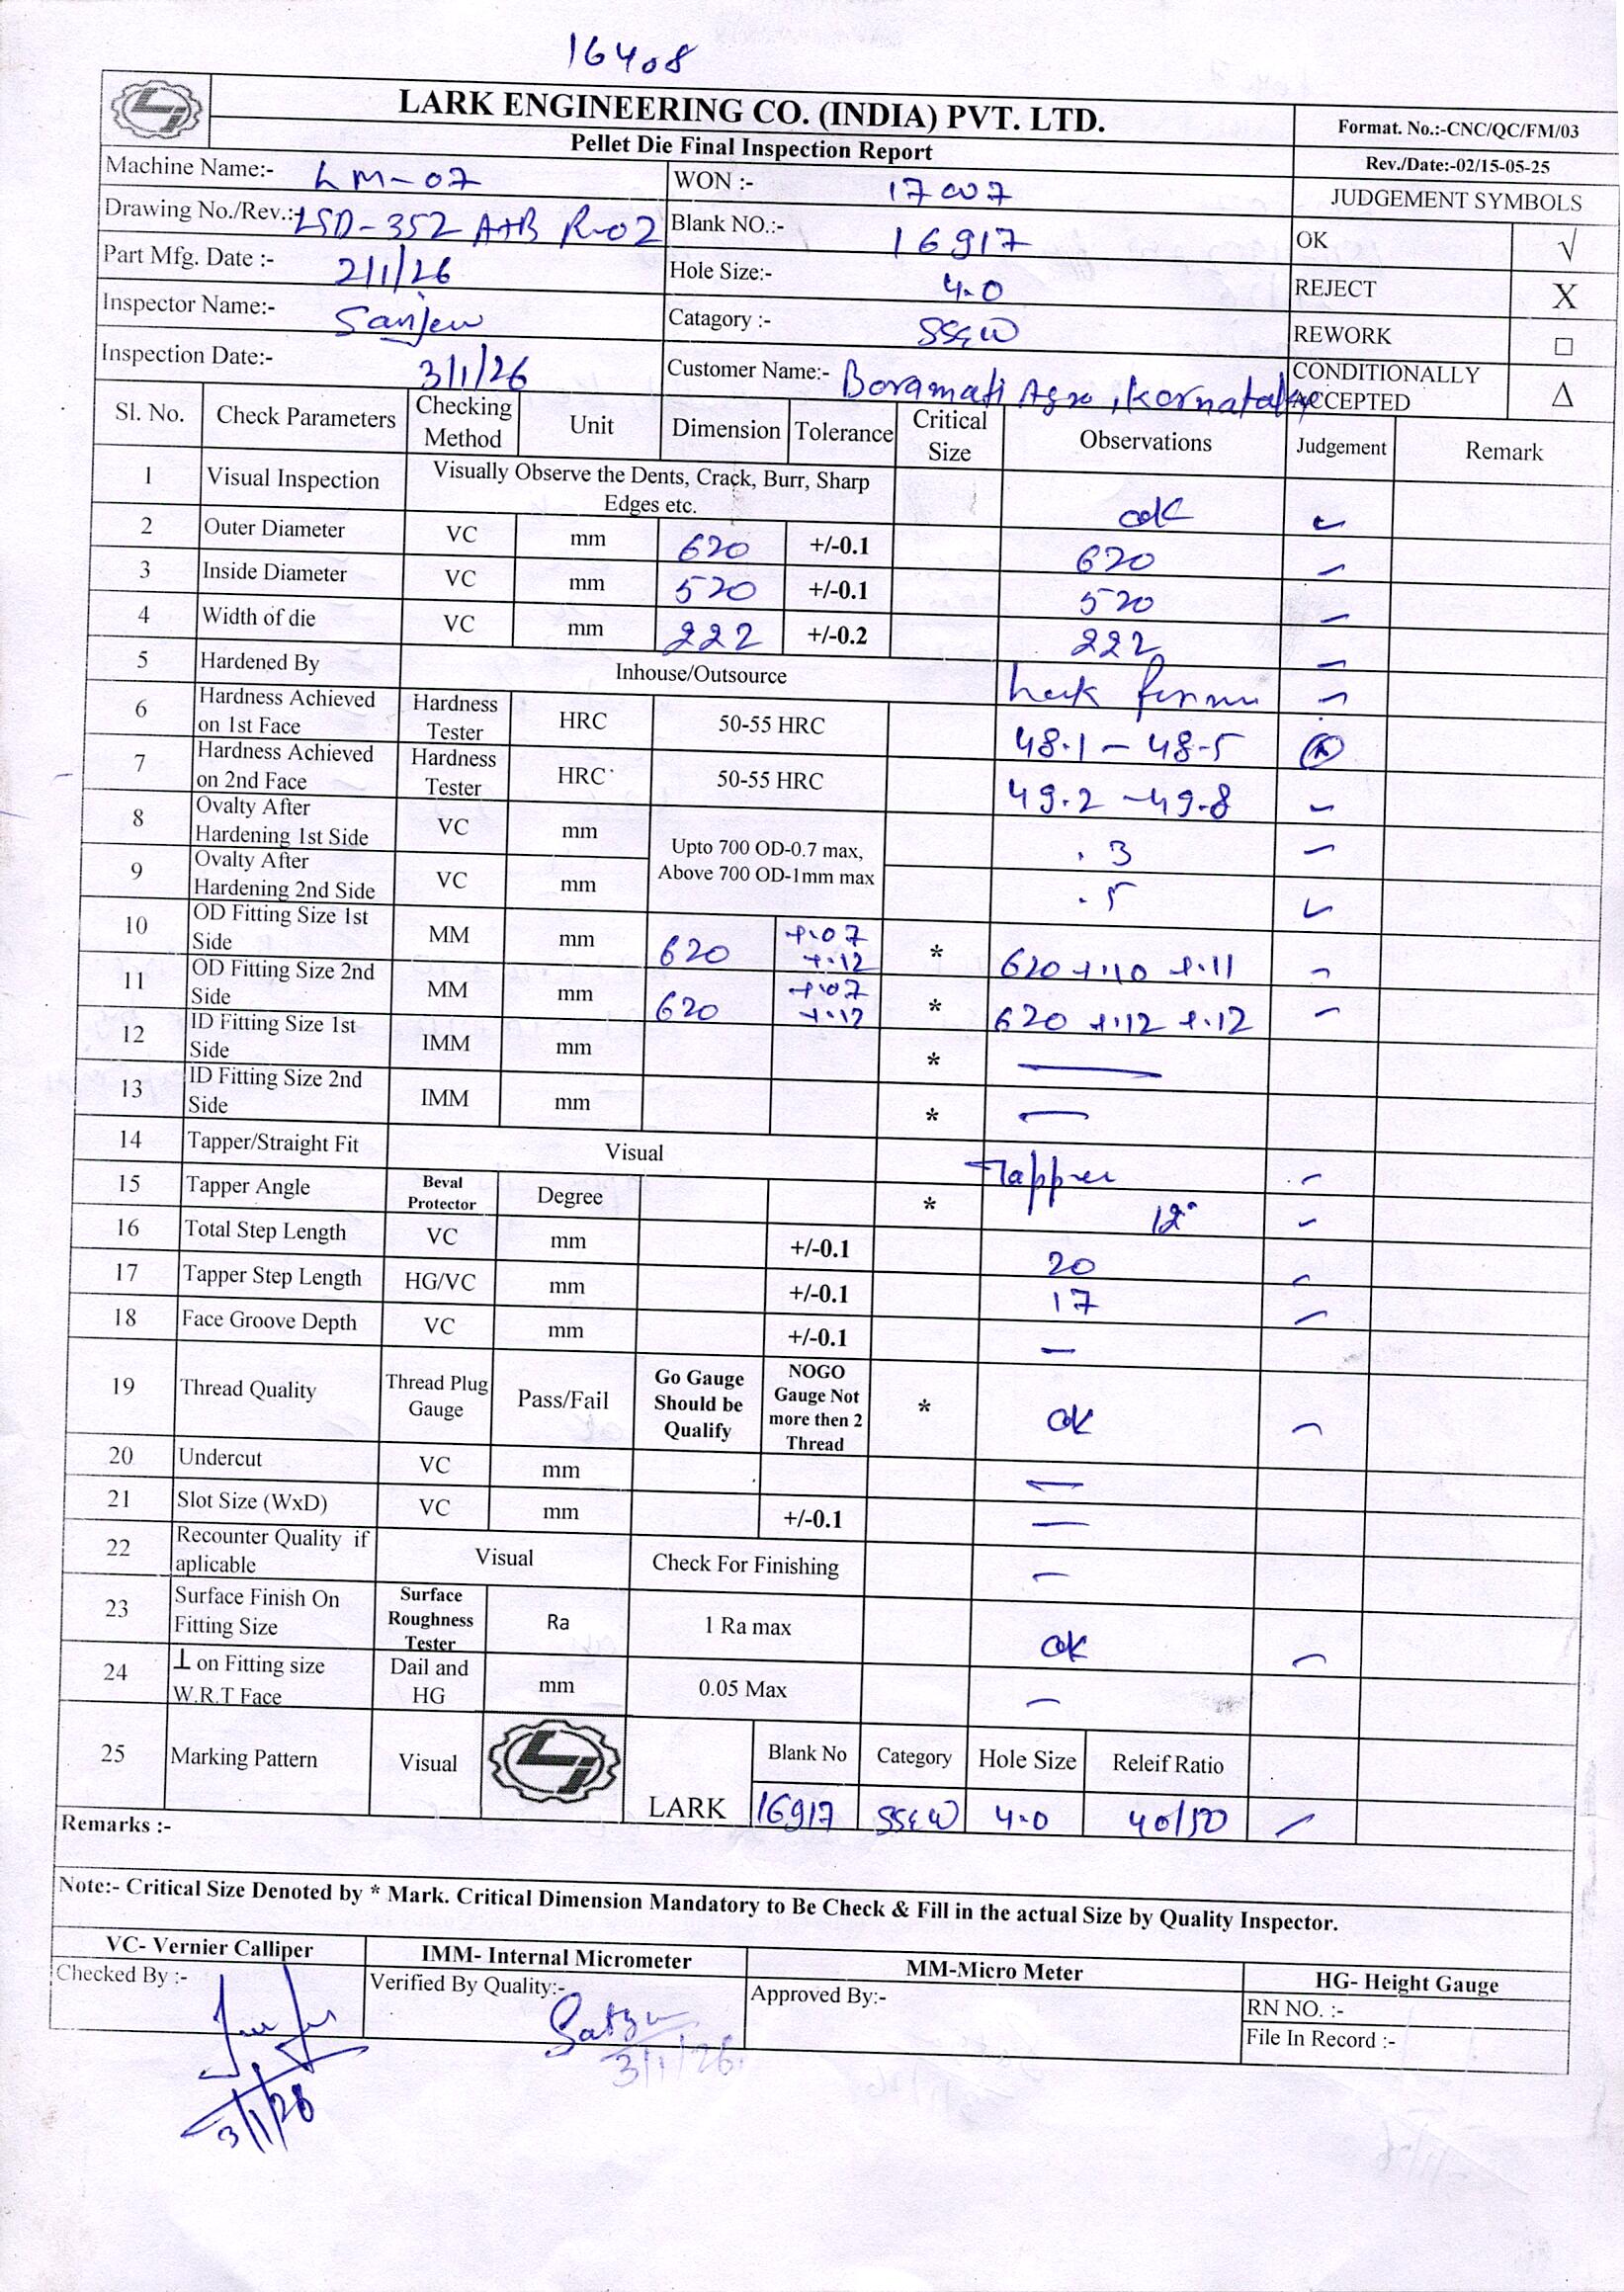 16408
LARK ENGINEERING CO. (INDIA) PVT. LTD.
Pellet Die Final Inspection Report
Format. No.:-CNC/QC/FM/03
Rev./Date:-02/15-05-25
Machine Name:- LM-07 WON :- 17007 JUDGEMENT SYMBOLS
Drawing No./Rev.:- LSD-352 A+B R-02 Blank NO.:- 16917 OK √
Part Mfg. Date :- 2/1/26 Hole Size:- 4.0 REJECT X
Inspector Name:- Sanjeev Catagory :- SSEW REWORK □
Inspection Date:- 3/1/26 Customer Name:- Boramati Agro, Kornataka CONDITIONALLY ACCEPTED Δ
Sl. No. Check Parameters Checking Method Unit Dimension Tolerance Critical Size Observations Judgement Remark
1 Visual Inspection Visually Observe the Dents, Crack, Burr, Sharp Edges etc. ok
2 Outer Diameter VC mm 620 +/-0.1 620
3 Inside Diameter VC mm 520 +/-0.1 520
4 Width of die VC mm 222 +/-0.2 222
5 Hardened By Inhouse/Outsource
6 Hardness Achieved on 1st Face Hardness Tester HRC 50-55 HRC 48.1 - 48.5
7 Hardness Achieved on 2nd Face Hardness Tester HRC 50-55 HRC 49.2 - 49.8
8 Ovalty After Hardening 1st Side VC mm Upto 700 OD-0.7 max, Above 700 OD-1mm max .3
9 Ovalty After Hardening 2nd Side VC mm .5
10 OD Fitting Size 1st Side MM mm 620 +.07 +.12 * 620 +.10 +.11
11 OD Fitting Size 2nd Side MM mm 620 +.07 +.12 * 620 +.12 +.12
12 ID Fitting Size 1st Side IMM mm * —
13 ID Fitting Size 2nd Side IMM mm * —
14 Tapper/Straight Fit Visual Tapper
15 Tapper Angle Beval Protector Degree * 12°
16 Total Step Length VC mm +/-0.1 20
17 Tapper Step Length HG/VC mm +/-0.1 17
18 Face Groove Depth VC mm +/-0.1 —
19 Thread Quality Thread Plug Gauge Pass/Fail Go Gauge Should be Qualify NOGO Gauge Not more then 2 Thread * ok
20 Undercut VC mm —
21 Slot Size (WxD) VC mm +/-0.1 —
22 Recounter Quality if aplicable Visual Check For Finishing —
23 Surface Finish On Fitting Size Surface Roughness Tester Ra 1 Ra max ok
24 ⊥ on Fitting size W.R.T Face Dail and HG mm 0.05 Max —
25 Marking Pattern Visual LARK Blank No Category Hole Size Releif Ratio
16917 SSEW 4.0 40/50
Remarks :-
Note:- Critical Size Denoted by * Mark. Critical Dimension Mandatory to Be Check & Fill in the actual Size by Quality Inspector.
VC- Vernier Calliper IMM- Internal Micrometer MM-Micro Meter HG- Height Gauge
Checked By :- Verified By Quality:- Approved By:- RN NO. :-
File In Record :-
3/1/26
3/1/26